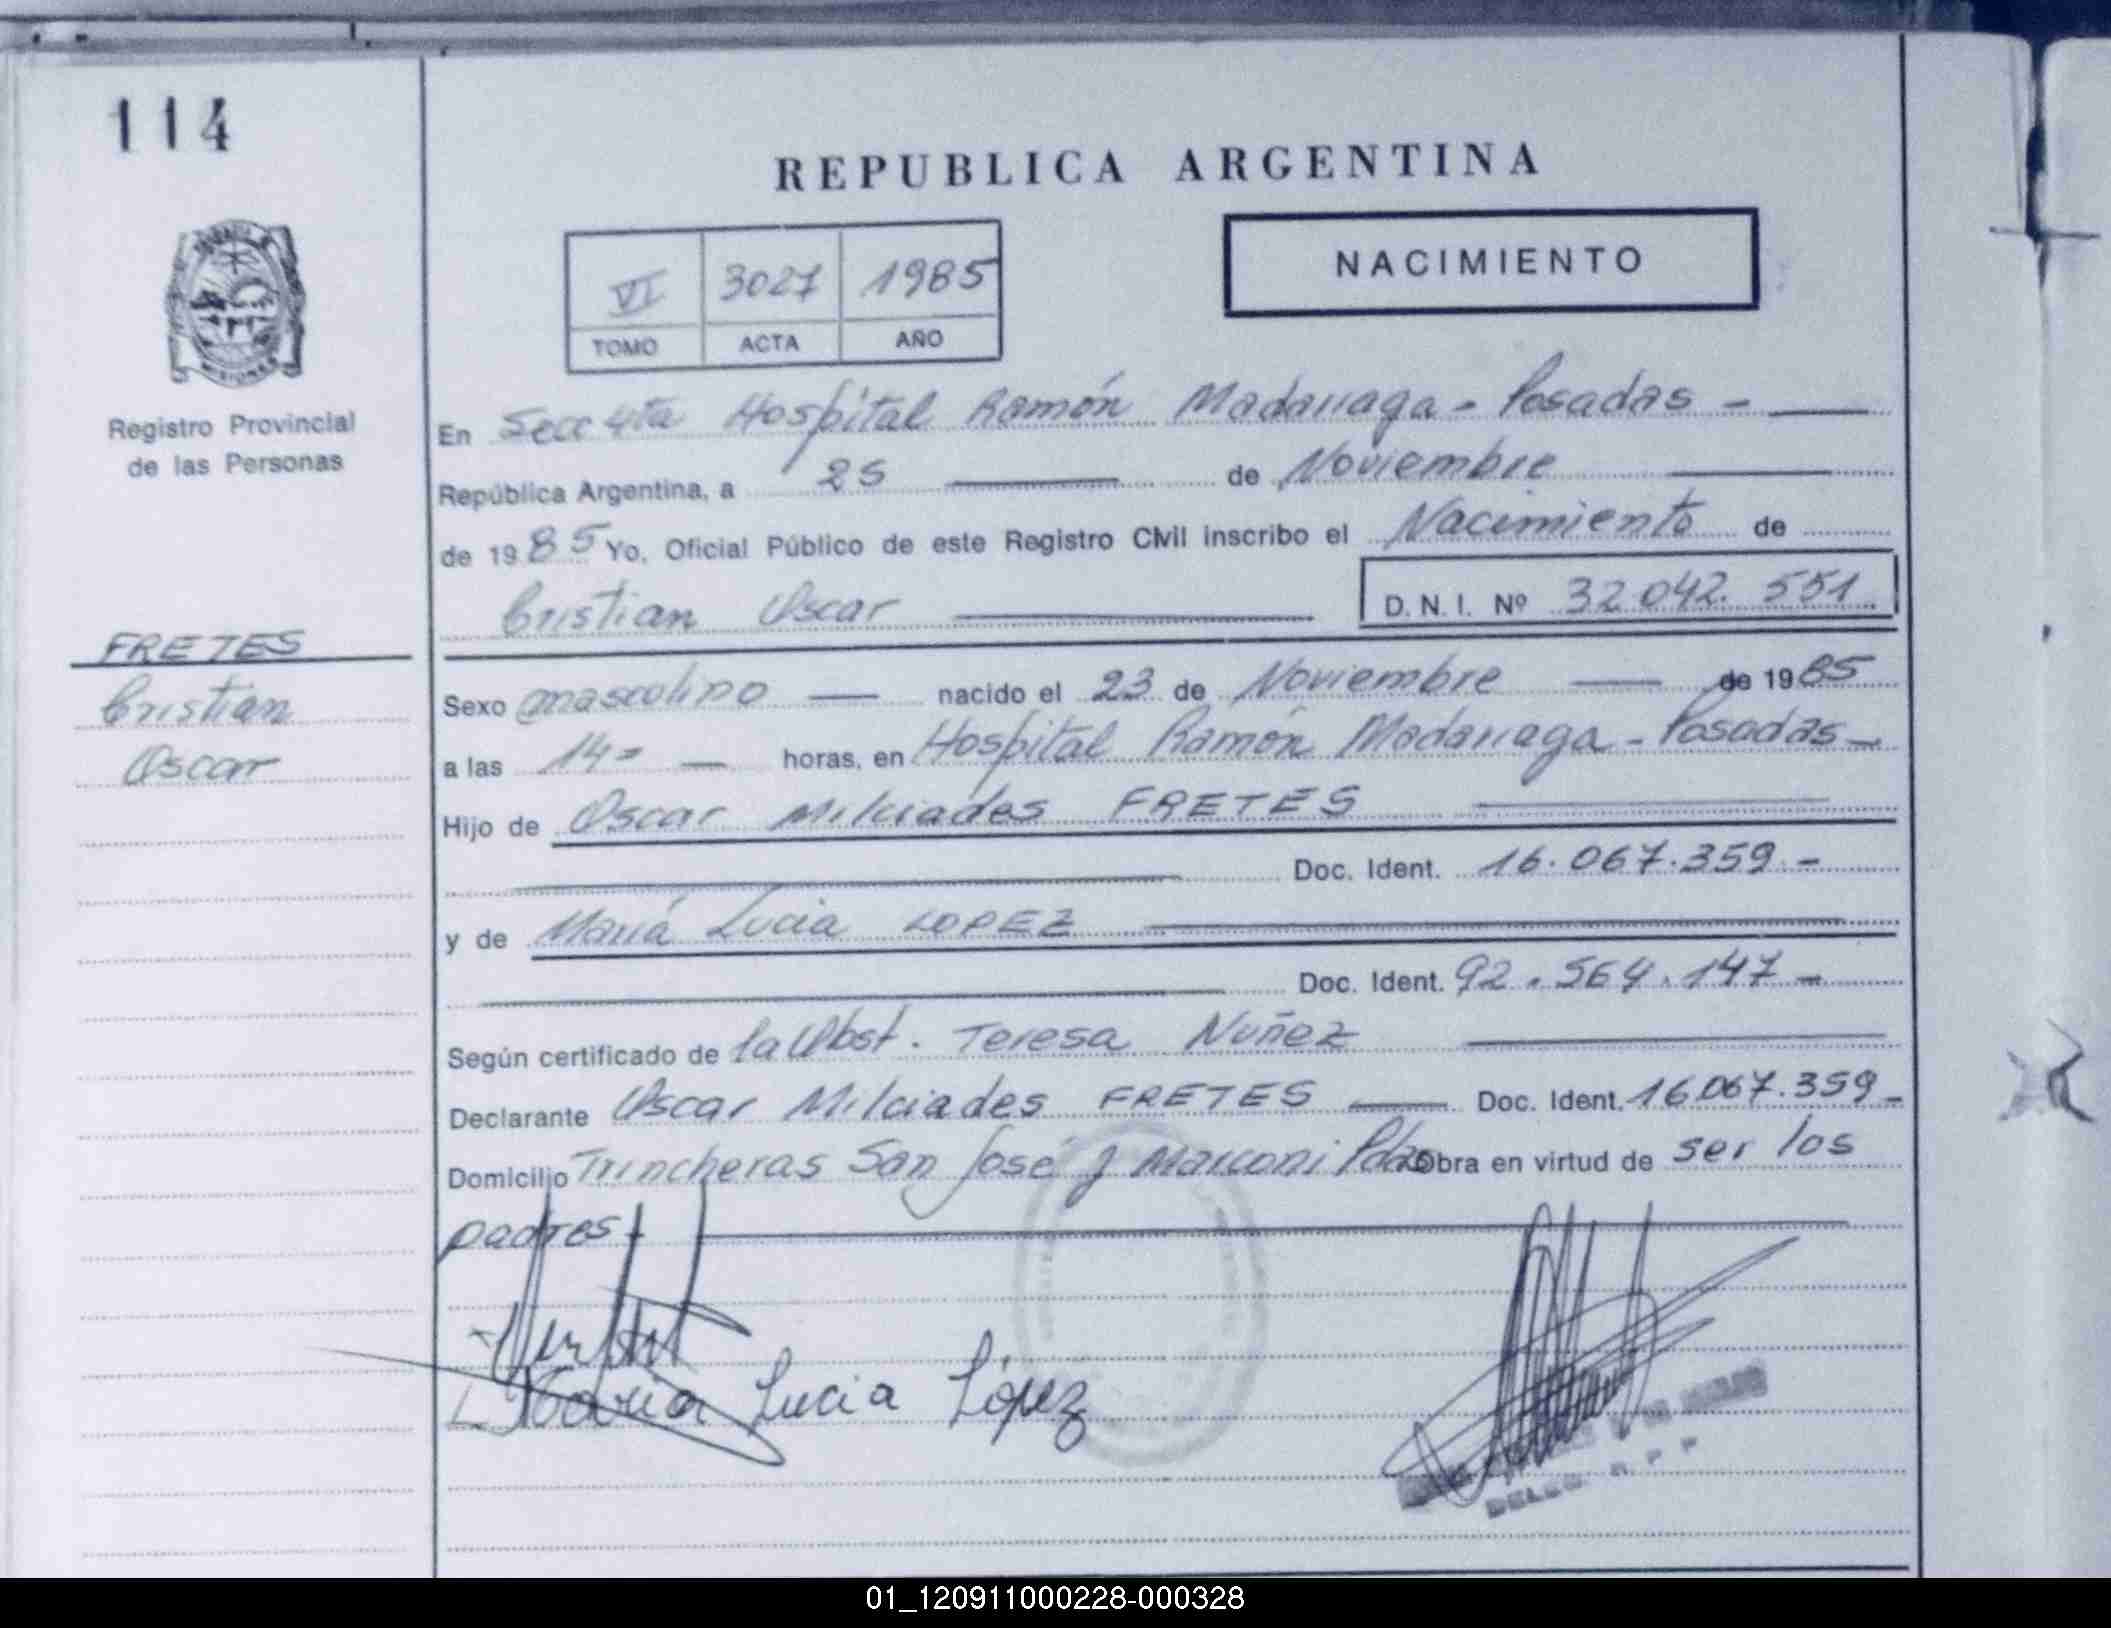 114
REPUBLICA ARGENTINA
VI 3027 1985
TOMO ACTA AÑO
NACIMIENTO
MISIONES
Registro Provincial
de las Personas
FRETES
Cristian
Oscar
En Secc 4ta Hospital Ramón Madariaga - Posadas -
República Argentina, a 25 de Noviembre
de 1985 Yo, Oficial Público de este Registro Civil inscribo el Nacimiento de
Cristian Oscar D.N.I. Nº 32.042.551
Sexo masculino nacido el 23 de Noviembre de 1985
a las 14- horas, en Hospital Ramón Madariaga - Posadas -
Hijo de Oscar Milciades FRETES
Doc. Ident. 16.067.359 -
y de María Lucia LOPEZ
Doc. Ident. 92.564.147 -
Según certificado de la Obst. Teresa Nuñez
Declarante Oscar Milciades FRETES Doc. Ident. 16.067.359 -
Domicilio Trincheras San José y Marconi Pdas Obra en virtud de ser los
padres -
María Lucia López
01_120911000228-000328